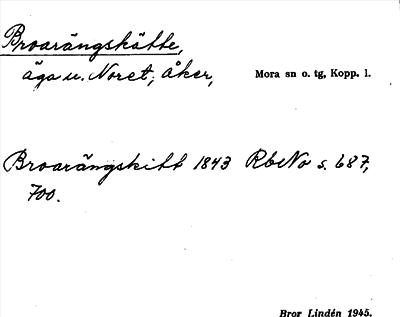 Broarängskätte,
äga u. Noret; åker, Mora sn o. tg, Kopp. l.
Broarängskitt 1843 RbNo s. 687,
700.
Bror Lindén 1945.